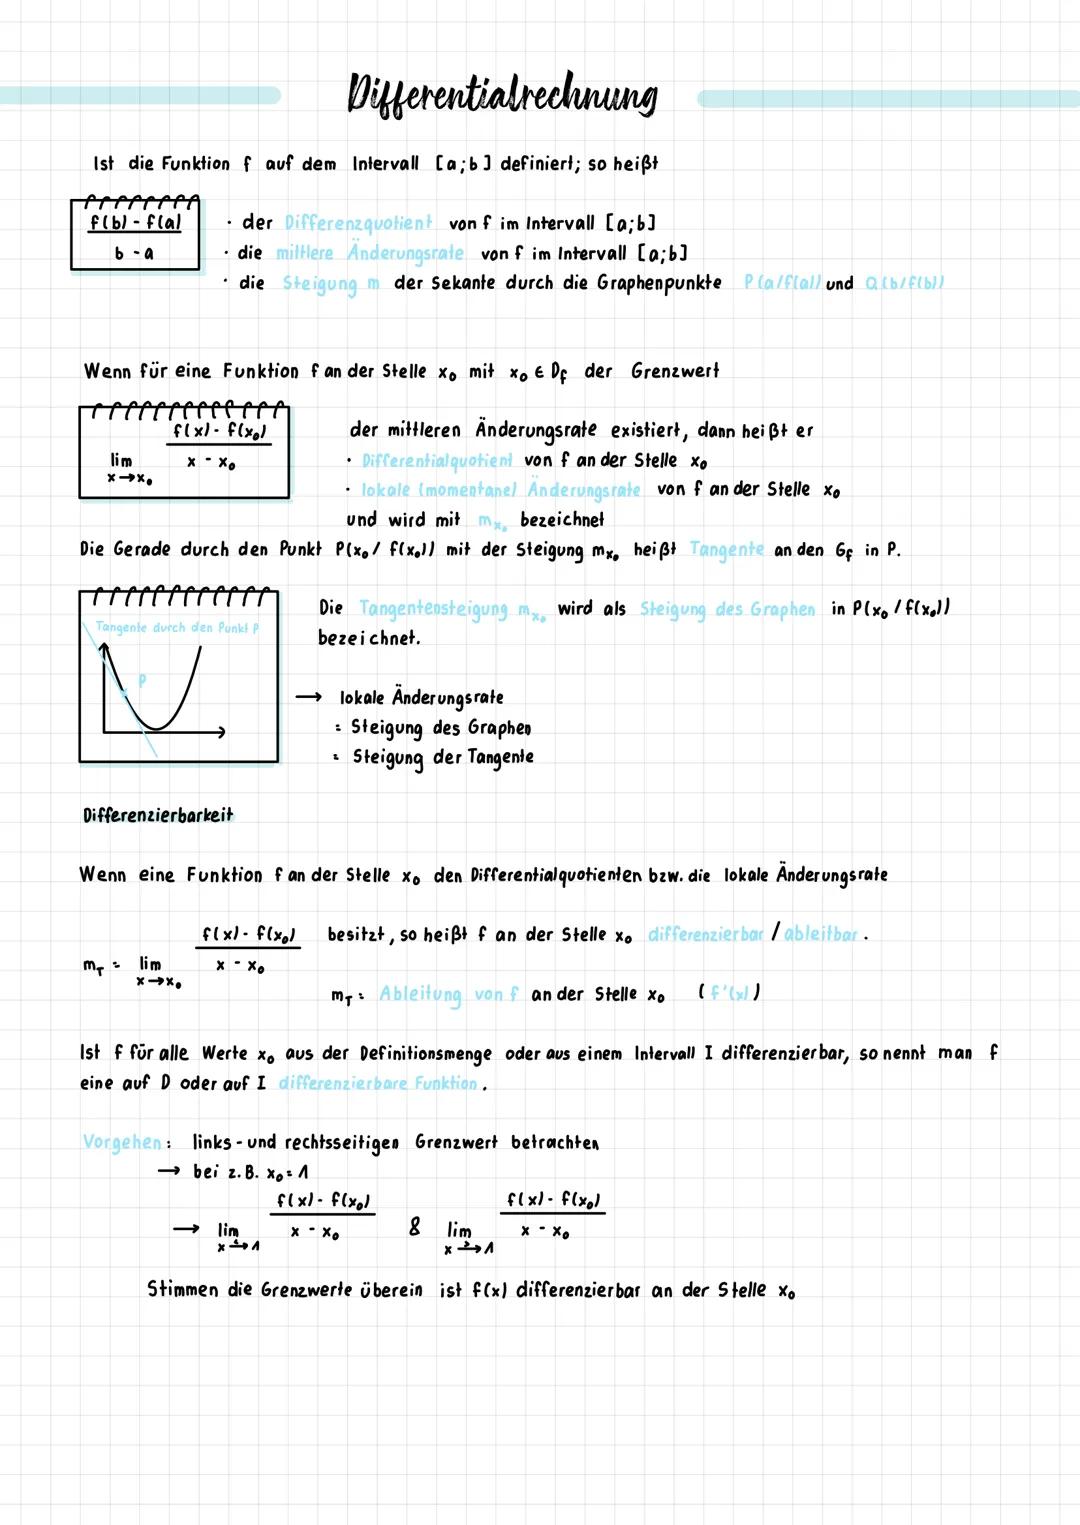 Differentialrechnung
Ist die Funktion f auf dem Intervall [a;b] definiert; so heißt
f(b) - f(a)
b - a
· der Differenzquotient von f im Intervall [a;b]
· die mittlere Änderungsrate von f im Intervall [a;b]
· die Steigung m der Sekante durch die Graphenpunkte P(a/f(a)) und Q(b/f(b))
Wenn für eine Funktion f an der Stelle x₀ mit x₀ ∈ D_f der Grenzwert
f(x) - f(x₀)
lim x - x₀
x→x₀
der mittleren Änderungsrate existiert, dann heißt er
· Differentialquotient von f an der Stelle x₀
· lokale (momentane) Änderungsrate von f an der Stelle x₀
und wird mit m_x₀ bezeichnet
Die Gerade durch den Punkt P(x₀/ f(x₀)) mit der Steigung m_x₀ heißt Tangente an den G_f in P.
Tangente durch den Punkt P
P
Die Tangentensteigung m_x₀ wird als Steigung des Graphen in P(x₀/f(x₀))
bezeichnet.
→ lokale Änderungsrate
= Steigung des Graphen
= Steigung der Tangente
Differenzierbarkeit
Wenn eine Funktion f an der Stelle x₀ den Differentialquotienten bzw. die lokale Änderungsrate
f(x) - f(x₀)
m_T = lim x - x₀
x→x₀
besitzt, so heißt f an der Stelle x₀ differenzierbar / ableitbar.
m_T = Ableitung von f an der Stelle x₀ (f'(x))
Ist f für alle Werte x₀ aus der Definitionsmenge oder aus einem Intervall I differenzierbar, so nennt man f
eine auf D oder auf I differenzierbare Funktion.
Vorgehen: links- und rechtsseitigen Grenzwert betrachten
→ bei z.B. x₀ = 1
f(x) - f(x₀) f(x) - f(x₀)
→ lim x - x₀ & lim x - x₀
x→1 x→1
Stimmen die Grenzwerte überein ist f(x) differenzierbar an der Stelle x₀